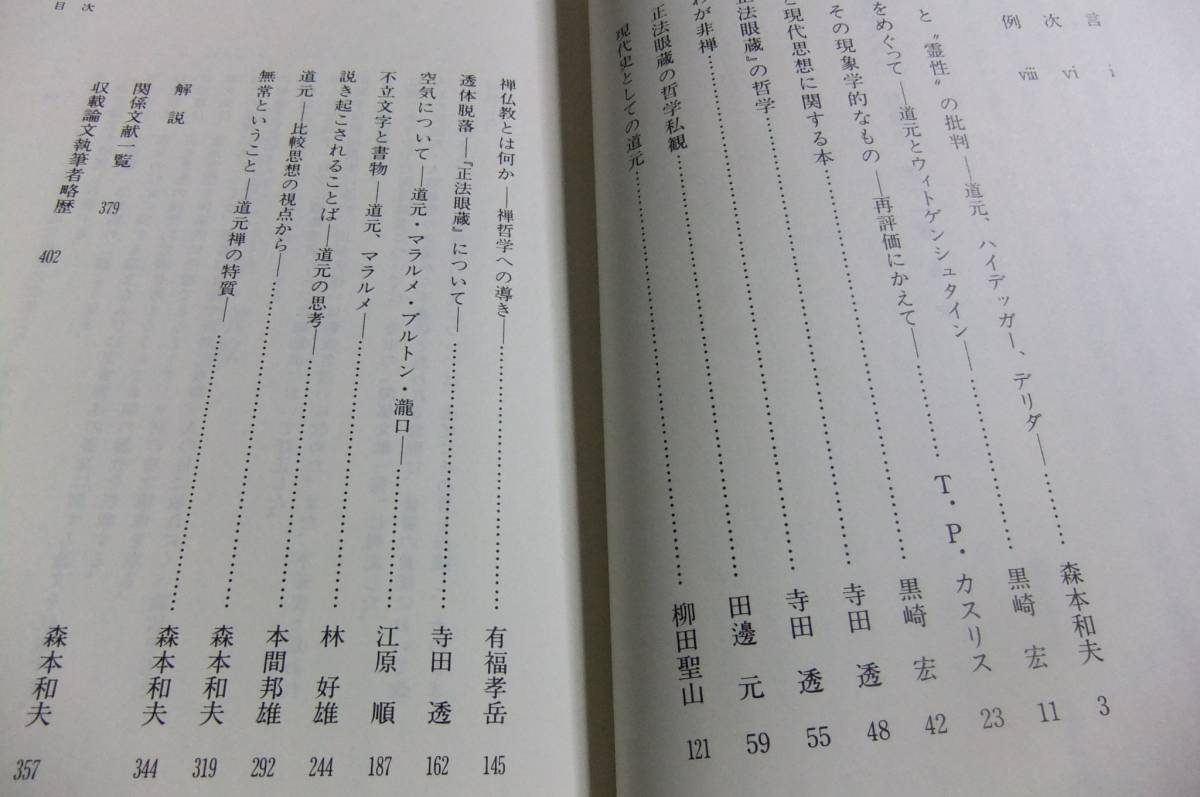 言 i
次 vi
例 viii
と“霊性”の批判――道元、ハイデッガー、デリダ――……森本和夫 3
をめぐって――道元とウィトゲンシュタイン――……黒崎 宏 11
その現象学的なもの――再評価にかえて――……T・P・カスリス 23
と現代思想に関する本……黒崎 宏 42
正法眼蔵』の哲学……寺田 透 48
わが非禅……寺田 透 55
正法眼蔵の哲学私観……田邊 元 59
現代史としての道元……柳田聖山 121
禅仏教とは何か――禅哲学への導き――……有福孝岳 145
透体脱落――『正法眼蔵』について――……寺田 透 162
空気について――道元・マラルメ・ブルトン・瀧口――……江原 順 187
不立文字と書物――道元、マラルメ――……林 好雄 244
説き起こされることば――道元の思考――……本間邦雄 292
道元――比較思想の視点から――……森本和夫 319
無常ということ――道元禅の特質――……森本和夫 344
解説 森本和夫 357
関係文献一覧 379
収載論文執筆者略歴 402
目次